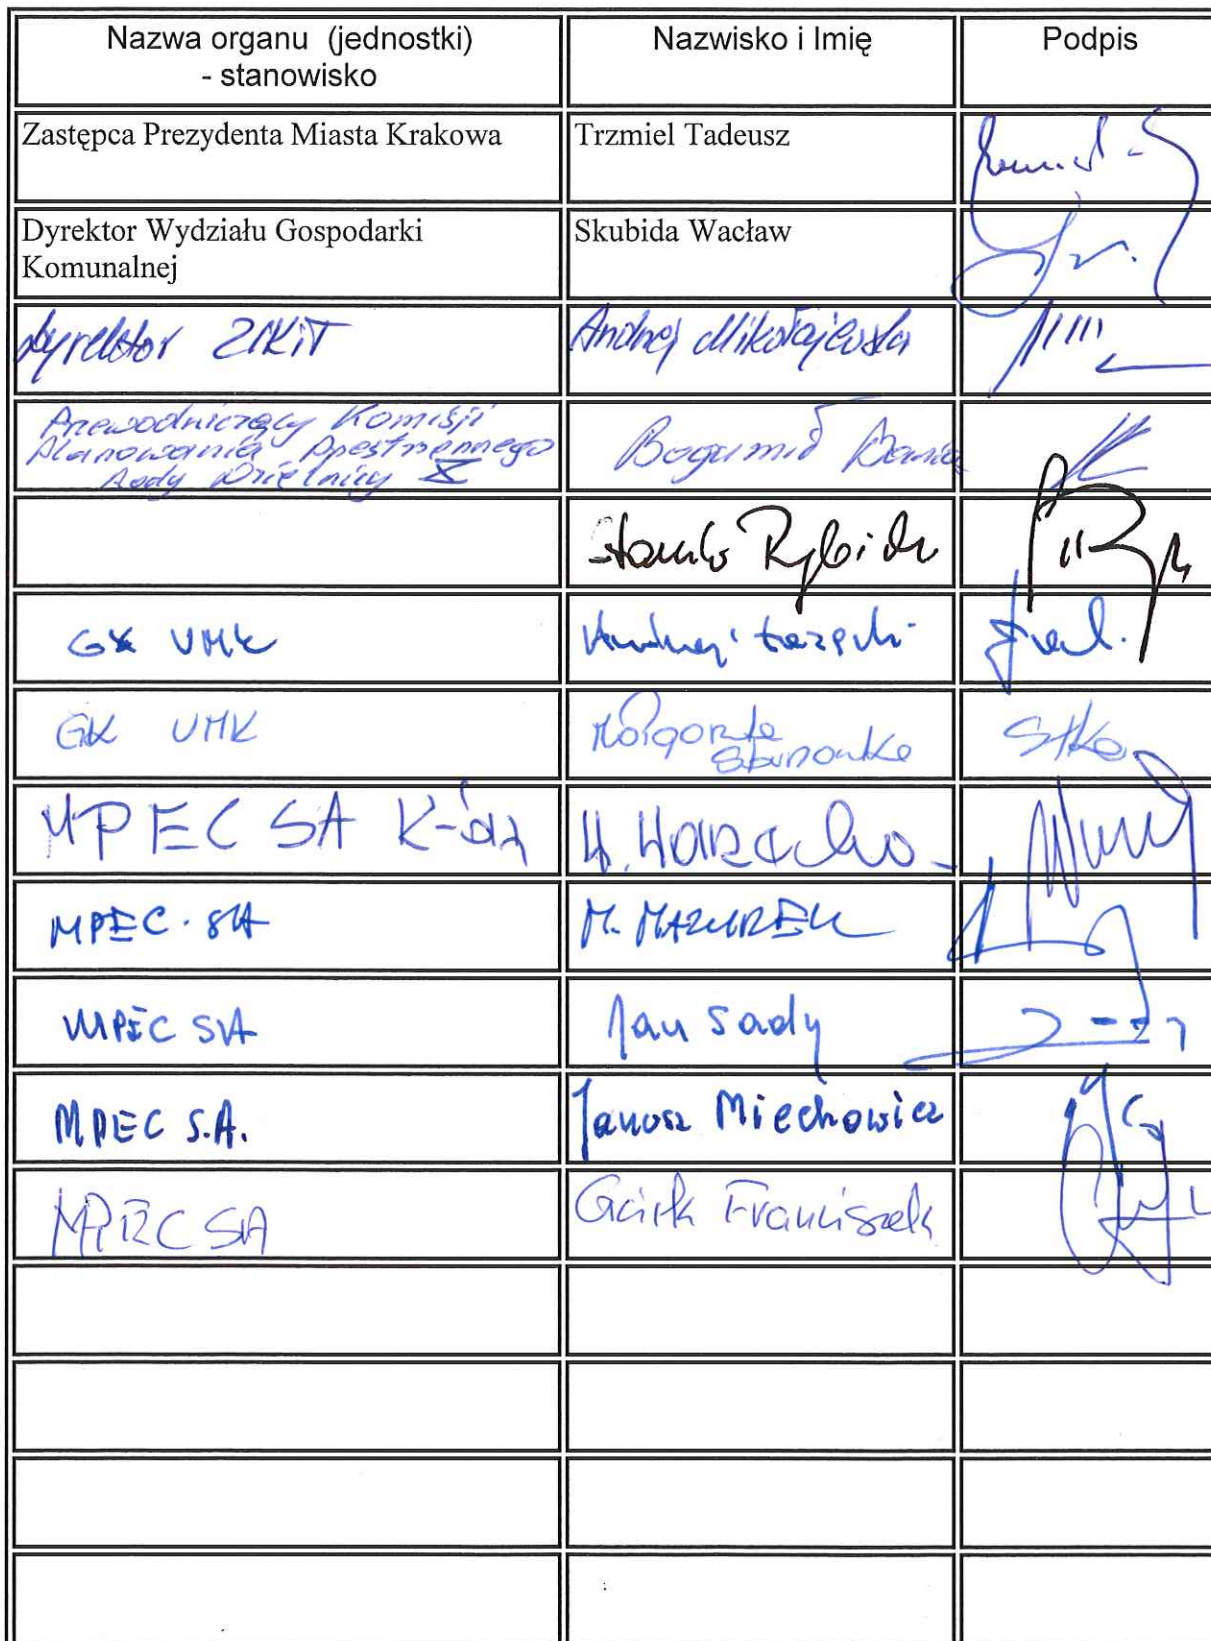 Nazwa organu (jednostki)
- stanowisko
Nazwisko i Imię
Podpis
Zastępca Prezydenta Miasta Krakowa
Trzmiel Tadeusz
Dyrektor Wydziału Gospodarki
Komunalnej
Skubida Wacław
Dyrektor ZIKiT
Andrzej Mikołajewski
Przewodniczący Komisji
Planowania Przestrzennego
Rady Dzielnicy X
Bogumił
GK UMK
Andrzej
GK UMK
Małgorzata
MPEC SA K-ów
MPEC SA
M. MAZUREK
MPEC SA
Jan Sady
MPEC S.A.
Janusz Miechowicz
MPEC SA
Franciszek